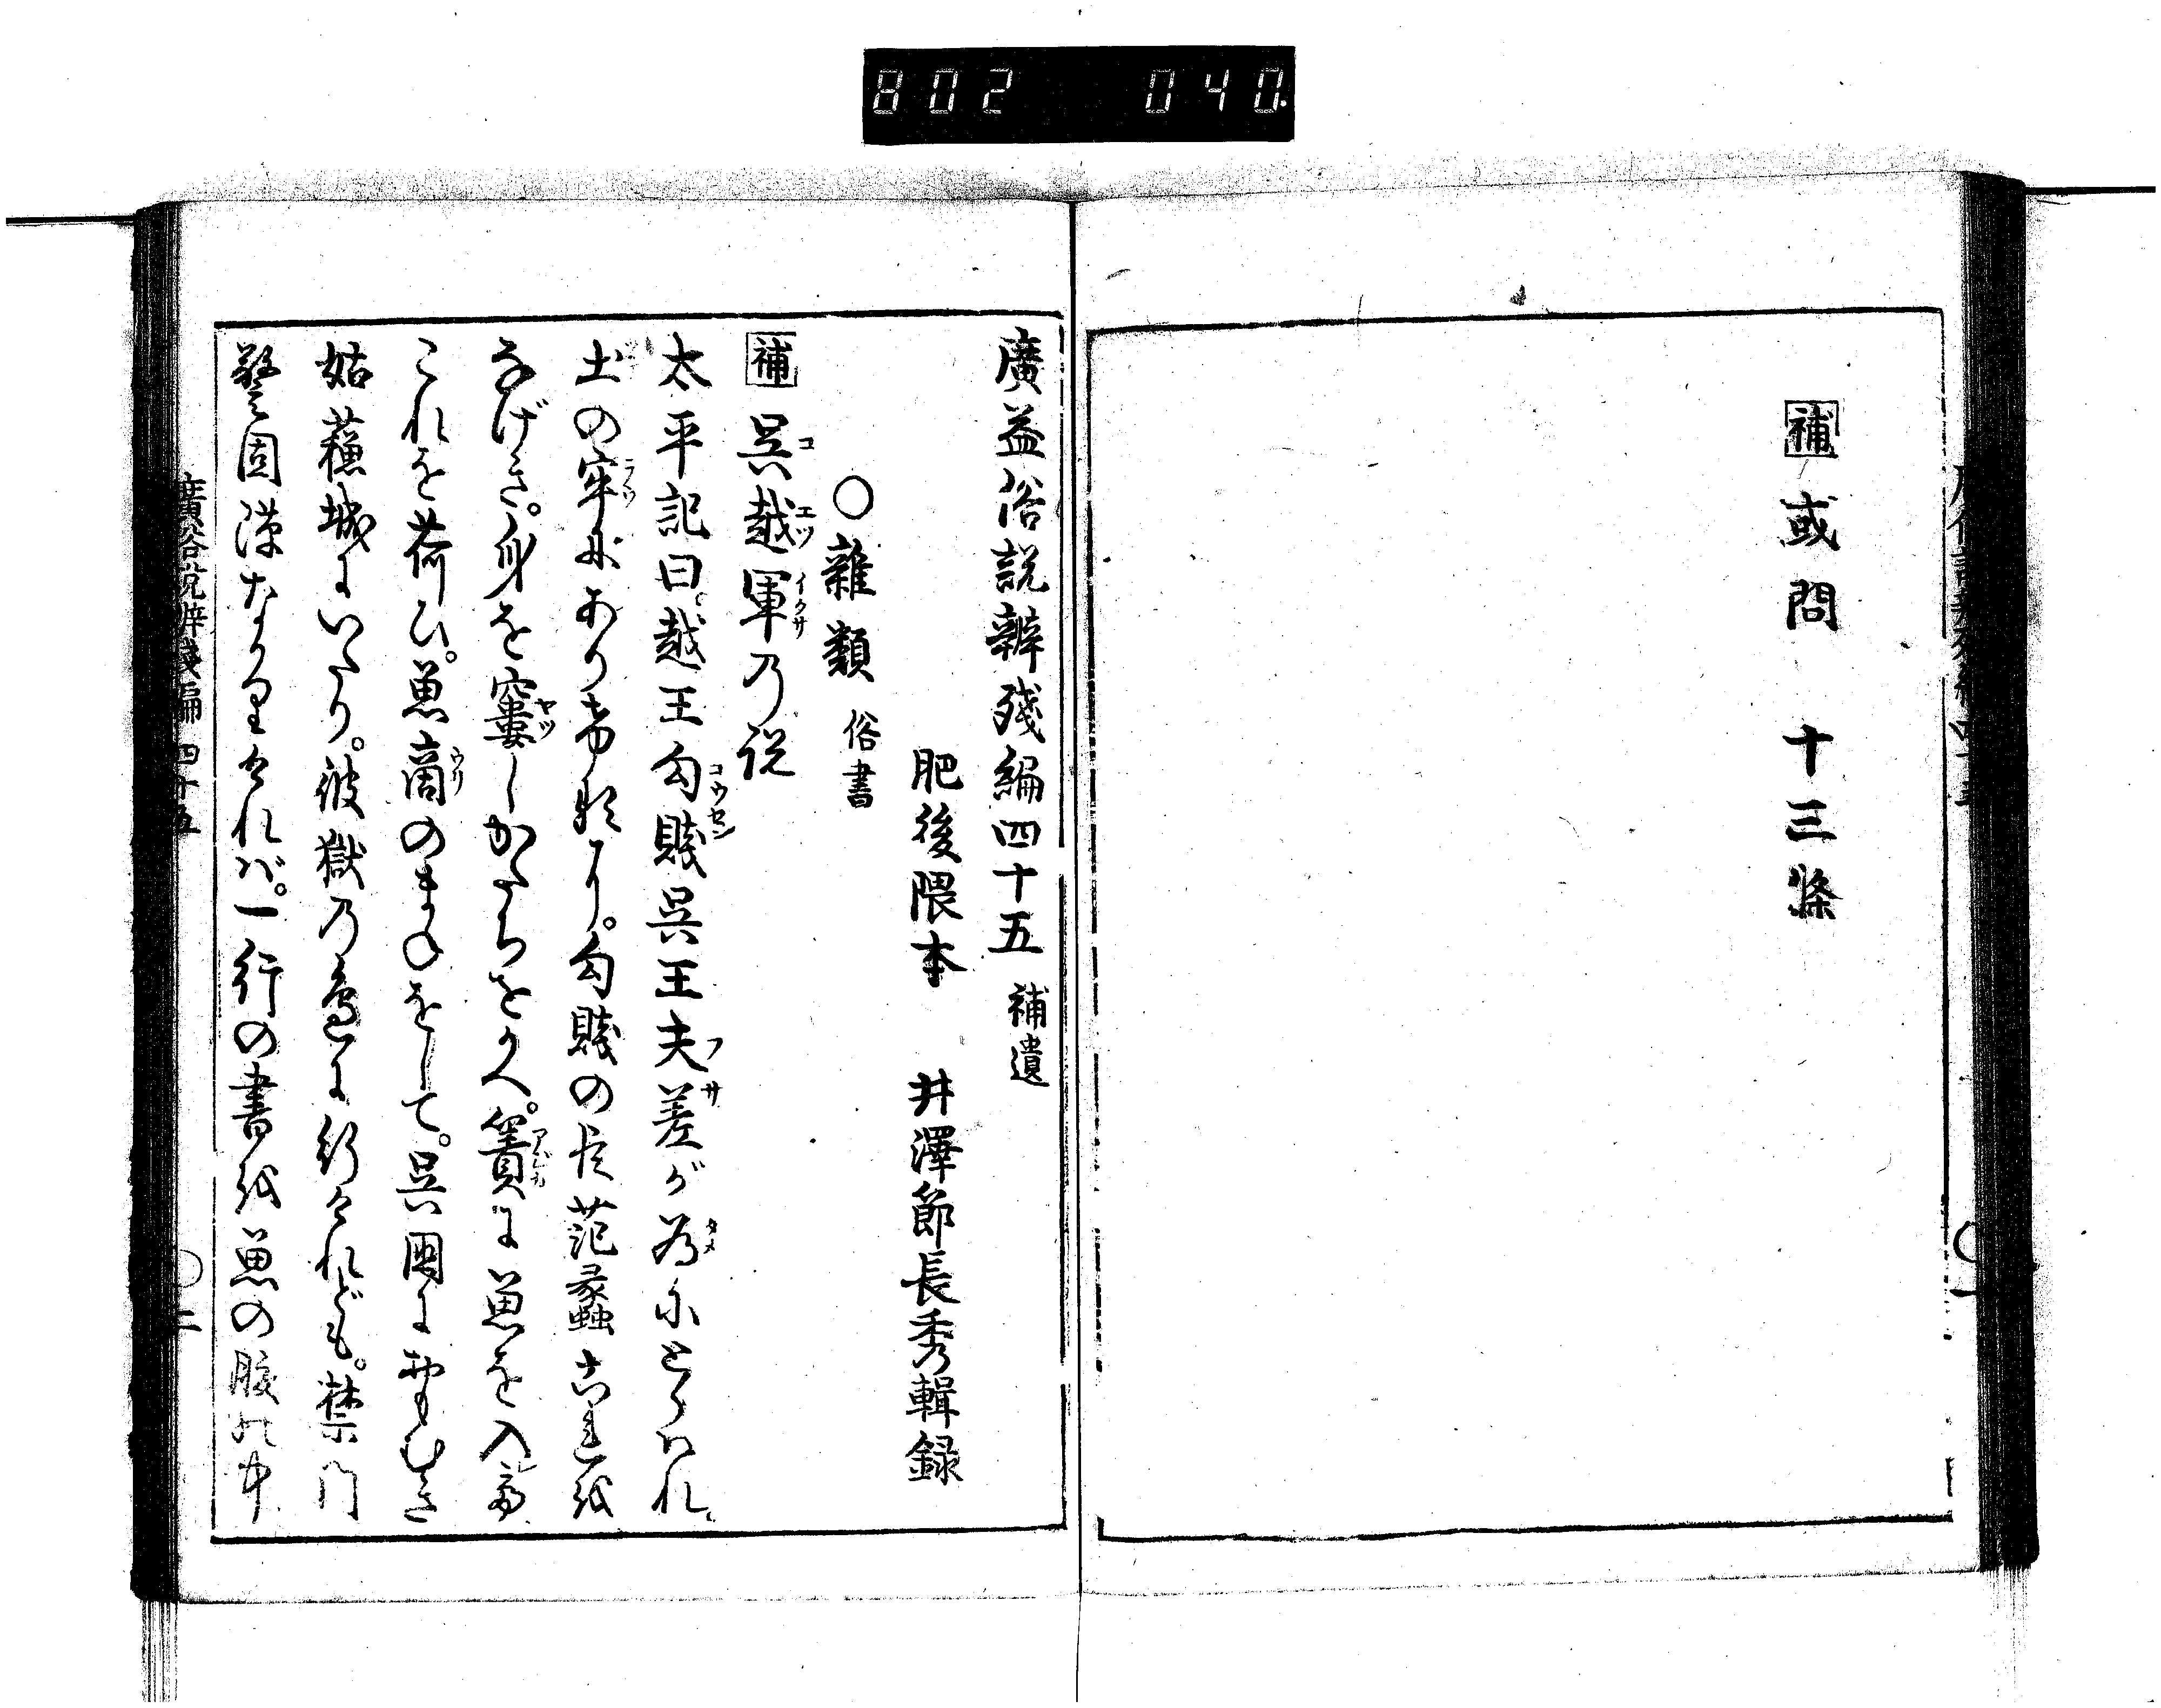 802 040
補 或問 十三條
廣益俗説辨殘編四十五 補遺
肥後隈本 井澤節長秀輯録
○雜類 俗書
補 呉越軍乃説
太平記曰。越王勾賤呉王夫差が為にとらハれ。
土の牢にあり
勾賤の臣范蠡これを
なげき。身を窶しかたちをかへ。簀に魚を入
これを荷ひ。魚商のまねをして。呉国におもむき
姑蘓城にいたり。彼獄乃邊に行けれども。禁門
警固隙なかりけれバ。一行の書を魚の腹の中
廣俗説辨殘編 四十五 ○二